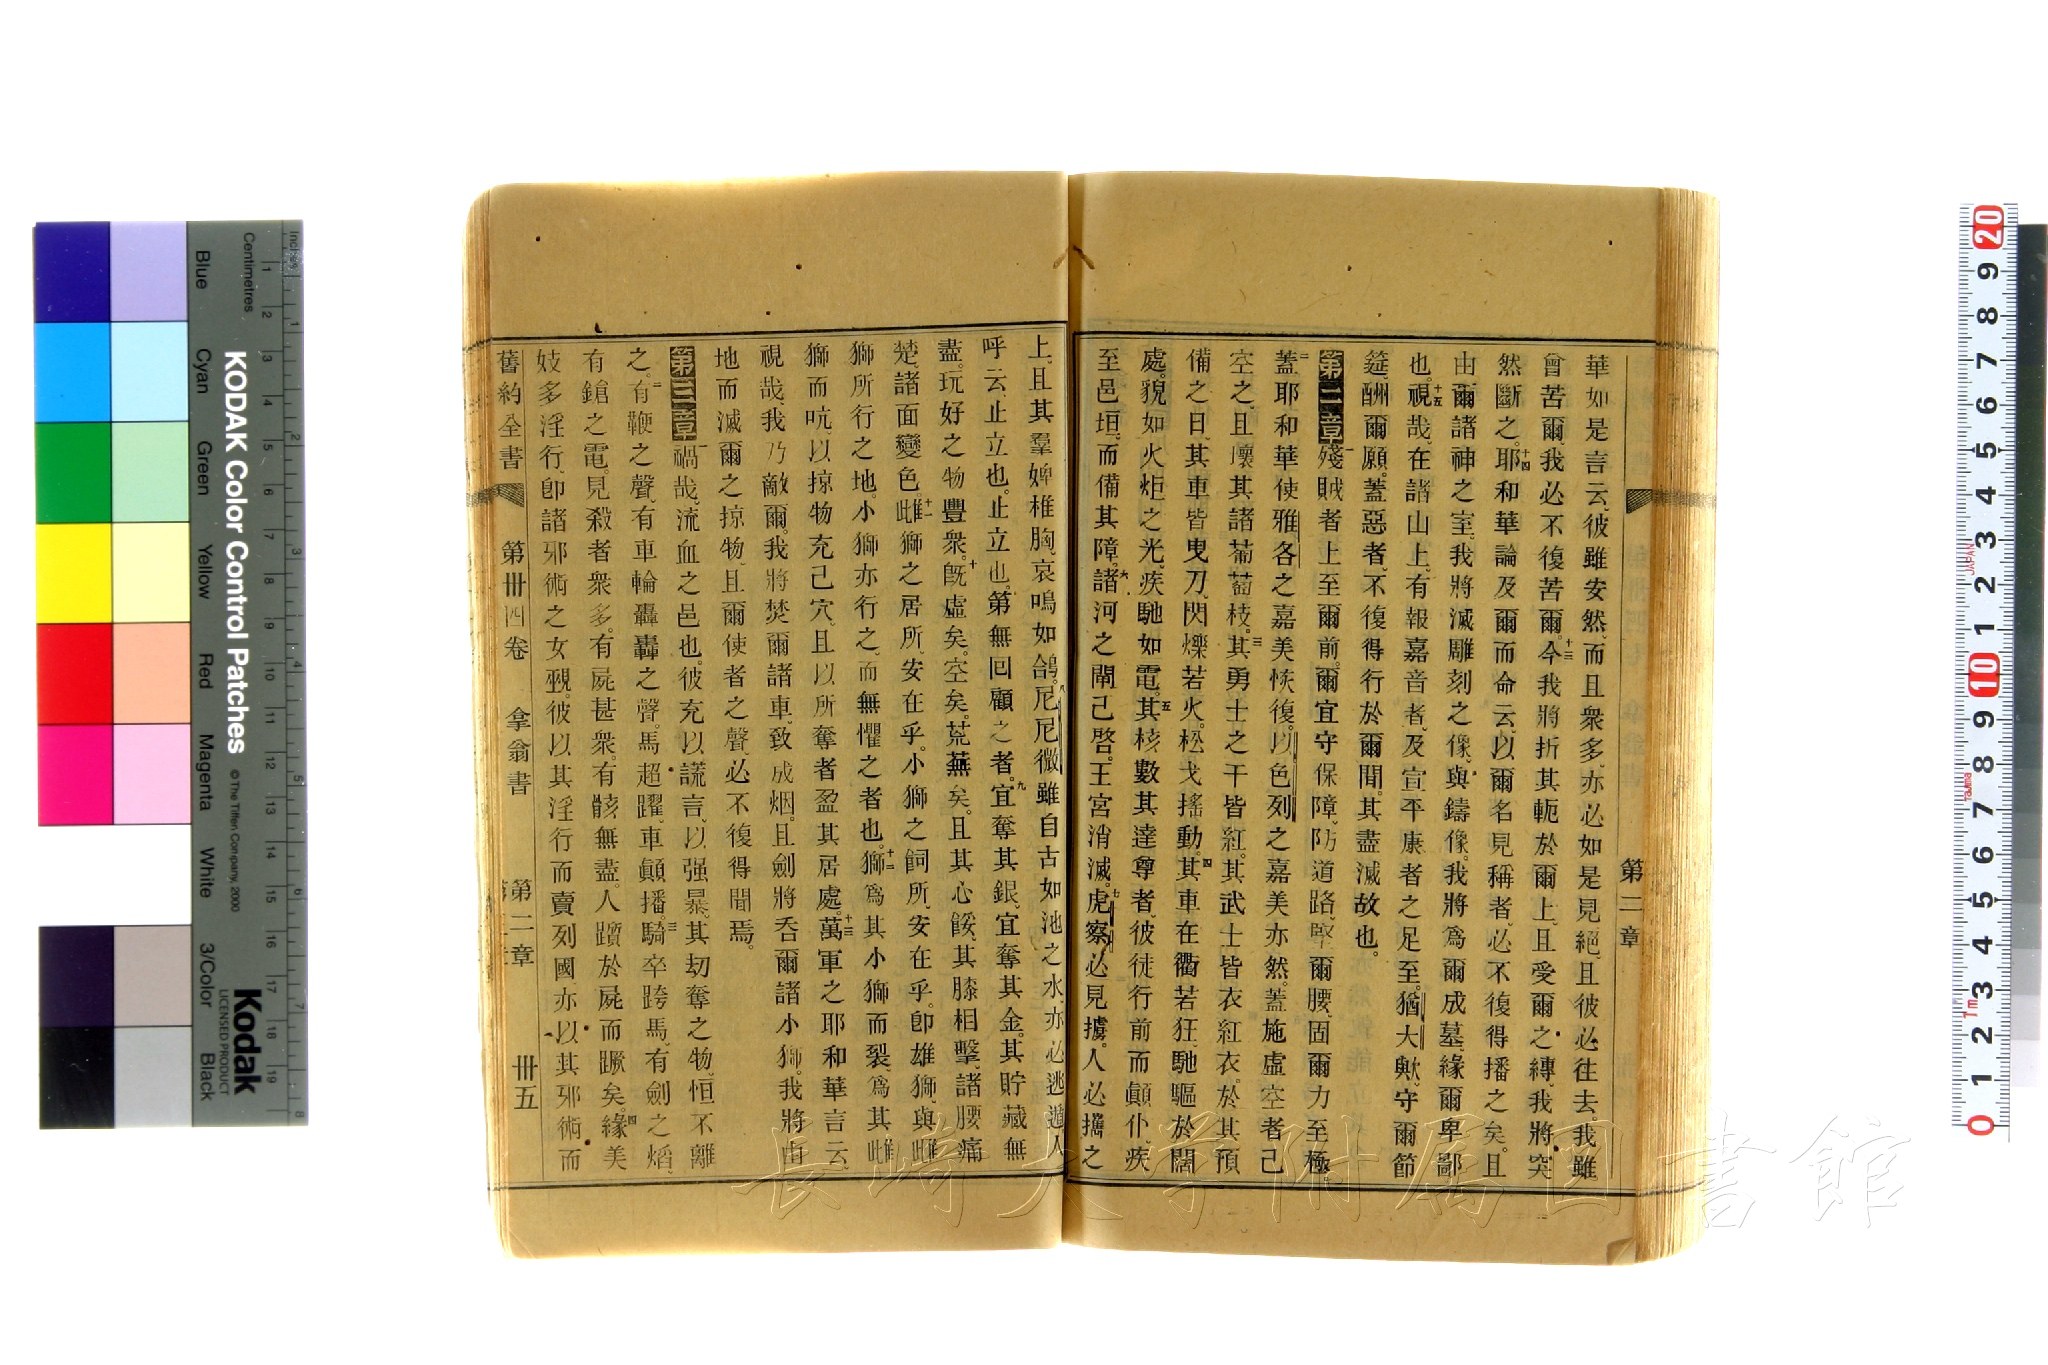 華如是言云、彼雖安然、而且衆多、亦必如是見絕、且彼必往去。我雖
曾苦爾、我必不復苦爾。十三今我將折其軛於爾上、且受爾之縛、我將突
然斷之。十四耶和華論及爾而命云、以爾名見稱者、必不復得播之矣。且
由爾諸神之室、我將滅雕刻之像、與鑄像。我將爲爾成墓、緣爾卑鄙
也。十五視哉、在諸山上、有報嘉音者、及宣平康者之足至。猶大歟、守爾節
筵、酬爾願。蓋惡者、不復得行於爾間。其盡滅故也。
第二章一殘賊者上至爾前。爾宜守保障、防道路、堅爾腰、固爾力至極。
二蓋耶和華使雅各之嘉美恢復。以色列之嘉美亦然。蓋施虛空者己
空之、且壞其諸葡萄枝。三其勇士之干皆紅。其武士皆衣紅衣。於其預
備之日、其車皆曳刀、閃爍若火。松戈搖動。四其車在衢若狂、馳驅於闊
處。貌如火炬之光、疾馳如電。五其核數其達尊者、彼徒行前而顚仆、疾
至邑垣。而備其障。六諸河之閘己啓。王宮消滅。七虎察必見擄。人必攜之
第二章
上、且其羣婢椎胸、哀鳴如鴿。八尼尼微雖自古如池之水、亦必逃遁。人
呼云、止立也。止立也。第無回顧之者。九宜奪其銀、宜奪其金。其貯藏無
盡。玩好之物豐衆。十旣虛矣。空矣。荒蕪矣。且其心餒、其膝相擊、諸腰痛
楚。諸面變色。十一雌獅之居所、安在乎。小獅之飼所、安在乎。卽雄獅、與雌
獅所行之地。小獅亦行之、而無懼之者也。十二獅爲其小獅而裂、爲其雌
獅而吭、以掠物充己穴、且以所奪者盈其居處。十三萬軍之耶和華言云、
視哉、我乃敵爾。我將焚爾諸車、致成烟。且劍將吞爾諸小獅。我將由
地而滅爾之掠物、且爾使者之聲、必不復得聞焉。
第三章一禍哉、流血之邑也。彼充以謊言、以强暴。其刧奪之物、恒不離
之。二有鞭之聲、有車輪轟轟之聲。馬超躍、車顚播。三騎卒跨馬、有劍之熖、
有鎗之電。見殺者衆多。有屍甚衆。有骸無盡。人躓於屍而蹶矣。四緣美
妓多淫行、卽諸邪術之女覡。彼以其淫行而賣列國、亦以其邪術、而
舊約全書 第卌四卷 拿翁書 第二章 卌五
KODAK Color Control Patches
©The Tiffen Company, 2000
Kodak
LICENSED PRODUCT
Inches
Centimetres
Blue Cyan Green Yellow Red Magenta White 3/Color Black
JAPAN
長崎大学附属図書館